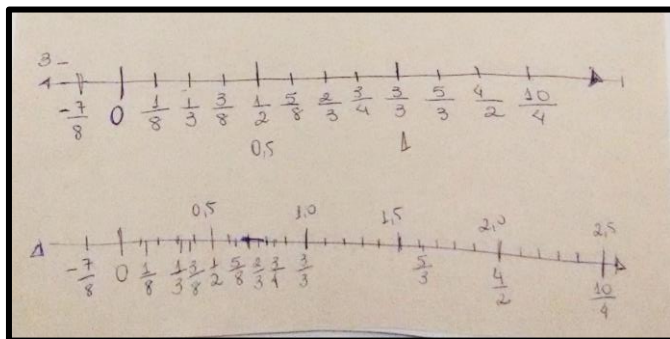 3
-7/8 0 1/8 1/3 3/8 1/2 5/8 2/3 3/4 3/3 5/3 4/2 10/4
0,5 1
0,5 1,0 1,5 2,0 2,5
-7/8 0 1/8 1/3 3/8 1/2 5/8 2/3 3/4 3/3 5/3 4/2 10/4